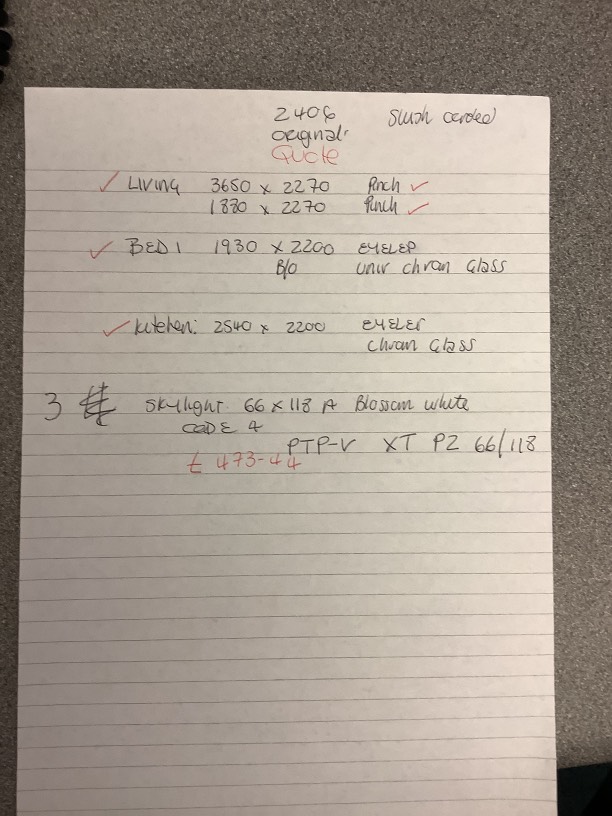 2406
Original.
Quote
Living 3650 x 2270 Pinch
1880 x 2270 Pinch
BED 1 1930 x 2200 EYELEP
B/O chrom Glass
kitchen: 2540 x 2200 EYELET
chrom Glass
3 Skylight 66 x 118 A Blossom white
CODE 4
PTP-V XT PZ 66/118
£ 473-44